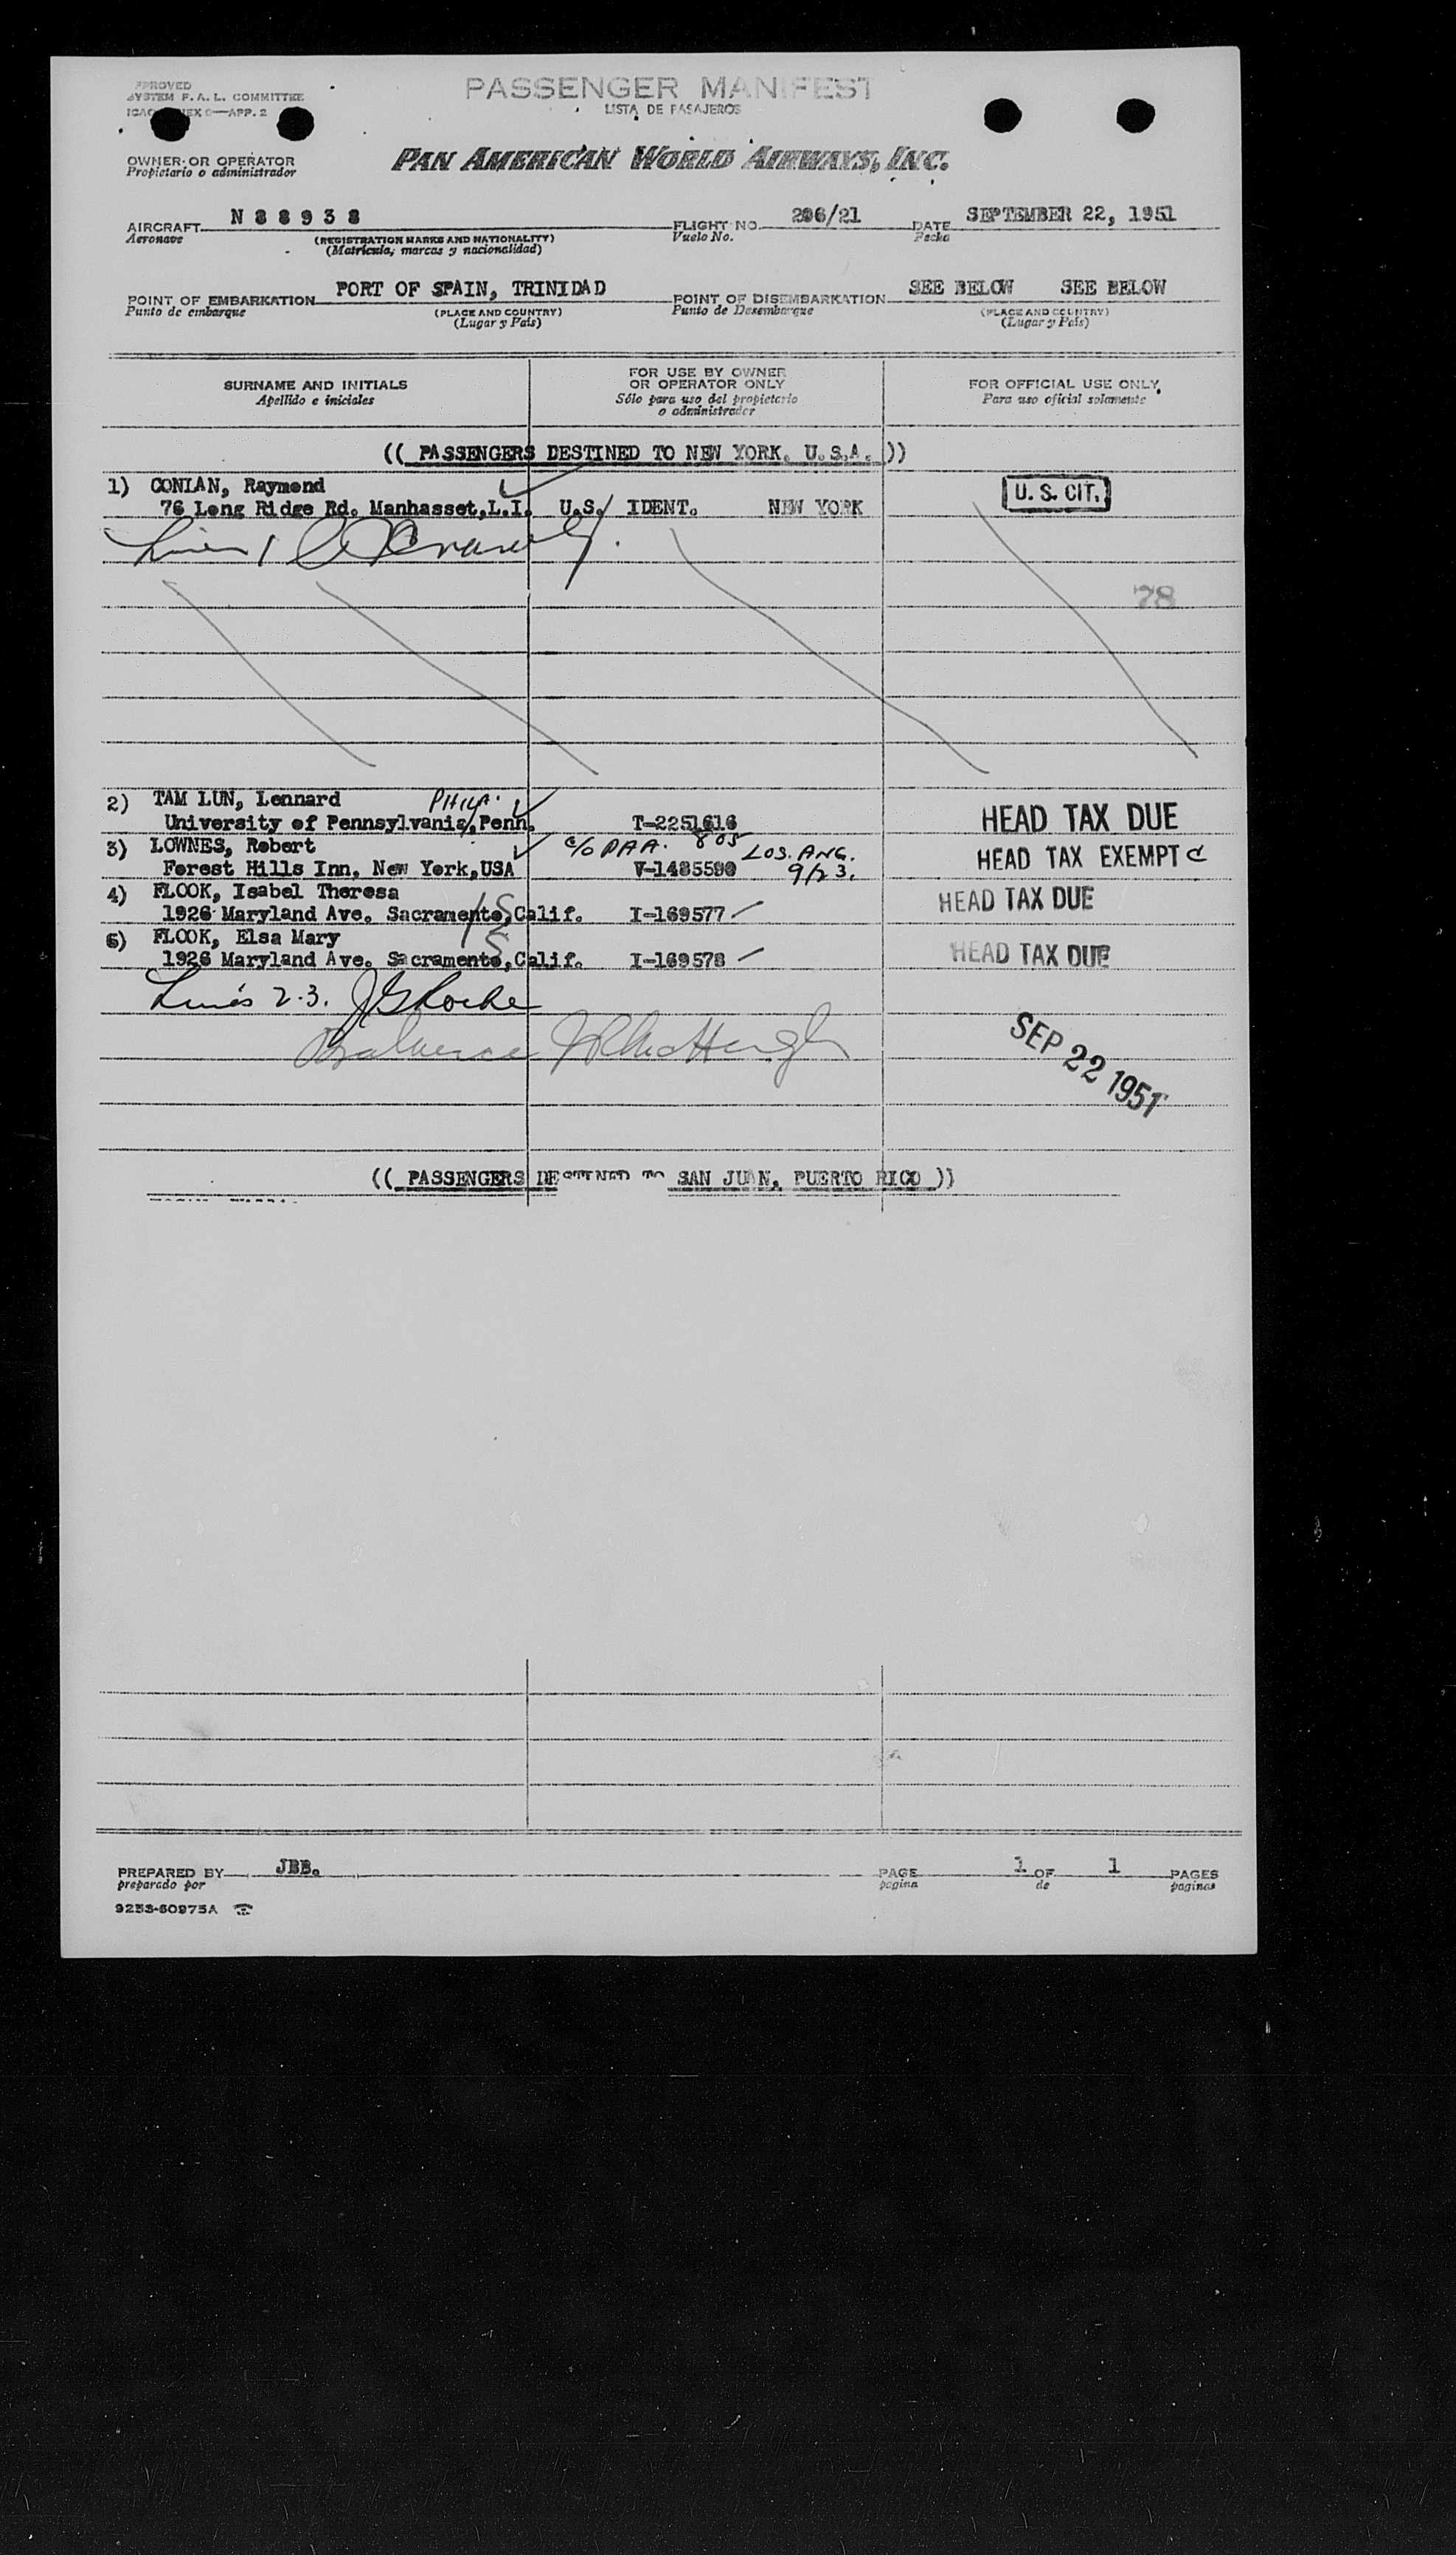 PASSENGER MANIFEST
LISTA DE PASAJEROS
APPROVED
SYSTEM F. A. L. COMMITTEE
APP. 2
OWNER OR OPERATOR
Propietario o administrador
PAN AMERICAN WORLD AIRWAYS, INC.
AIRCRAFT N 8 8 9 3 8 FLIGHT NO. 206/21 DATE SEPTEMBER 22, 1951
Aeronave (REGISTRATION MARKS AND NATIONALITY) Vuelo No. Fecha
(Matrícula, marcas y nacionalidad)
POINT OF EMBARKATION PORT OF SPAIN, TRINIDAD POINT OF DISEMBARKATION SEE BELOW SEE BELOW
Punto de embarque (PLACE AND COUNTRY) Punto de Desembarque (PLACE AND COUNTRY)
(Lugar y País) (Lugar y País)
SURNAME AND INITIALS
Apellido e iniciales
FOR USE BY OWNER
OR OPERATOR ONLY
Sólo para uso del propietario
o administrador
FOR OFFICIAL USE ONLY
Para uso oficial solamente
(( PASSENGERS DESTINED TO NEW YORK, U.S.A. ))
1) CONLAN, Raymond U. S. CIT.
76 Long Ridge Rd. Manhasset, L.I. U.S. IDENT. NEW YORK
Line 1
78
2) TAM LUN, Lennard PHILA.
University of Pennsylvania, Penn. T-2251616 HEAD TAX DUE
3) LOWNES, Robert c/o PAA. 805 LOS. ANG.
Forest Hills Inn, New York, USA V-1485590 9/23. HEAD TAX EXEMPT C
4) FLOOK, Isabel Theresa
1926 Maryland Ave. Sacramento, Calif. I-169577 HEAD TAX DUE
5) FLOOK, Elsa Mary
1926 Maryland Ave. Sacramento, Calif. I-169578 HEAD TAX DUE
Lines 2-3. JG Roche
Balance
SEP 22 1951
(( PASSENGERS DESTINED TO SAN JUAN, PUERTO RICO ))
PREPARED BY JBB. PAGE 1 OF 1 PAGES
preparado por pagina de paginas
9253-60975A